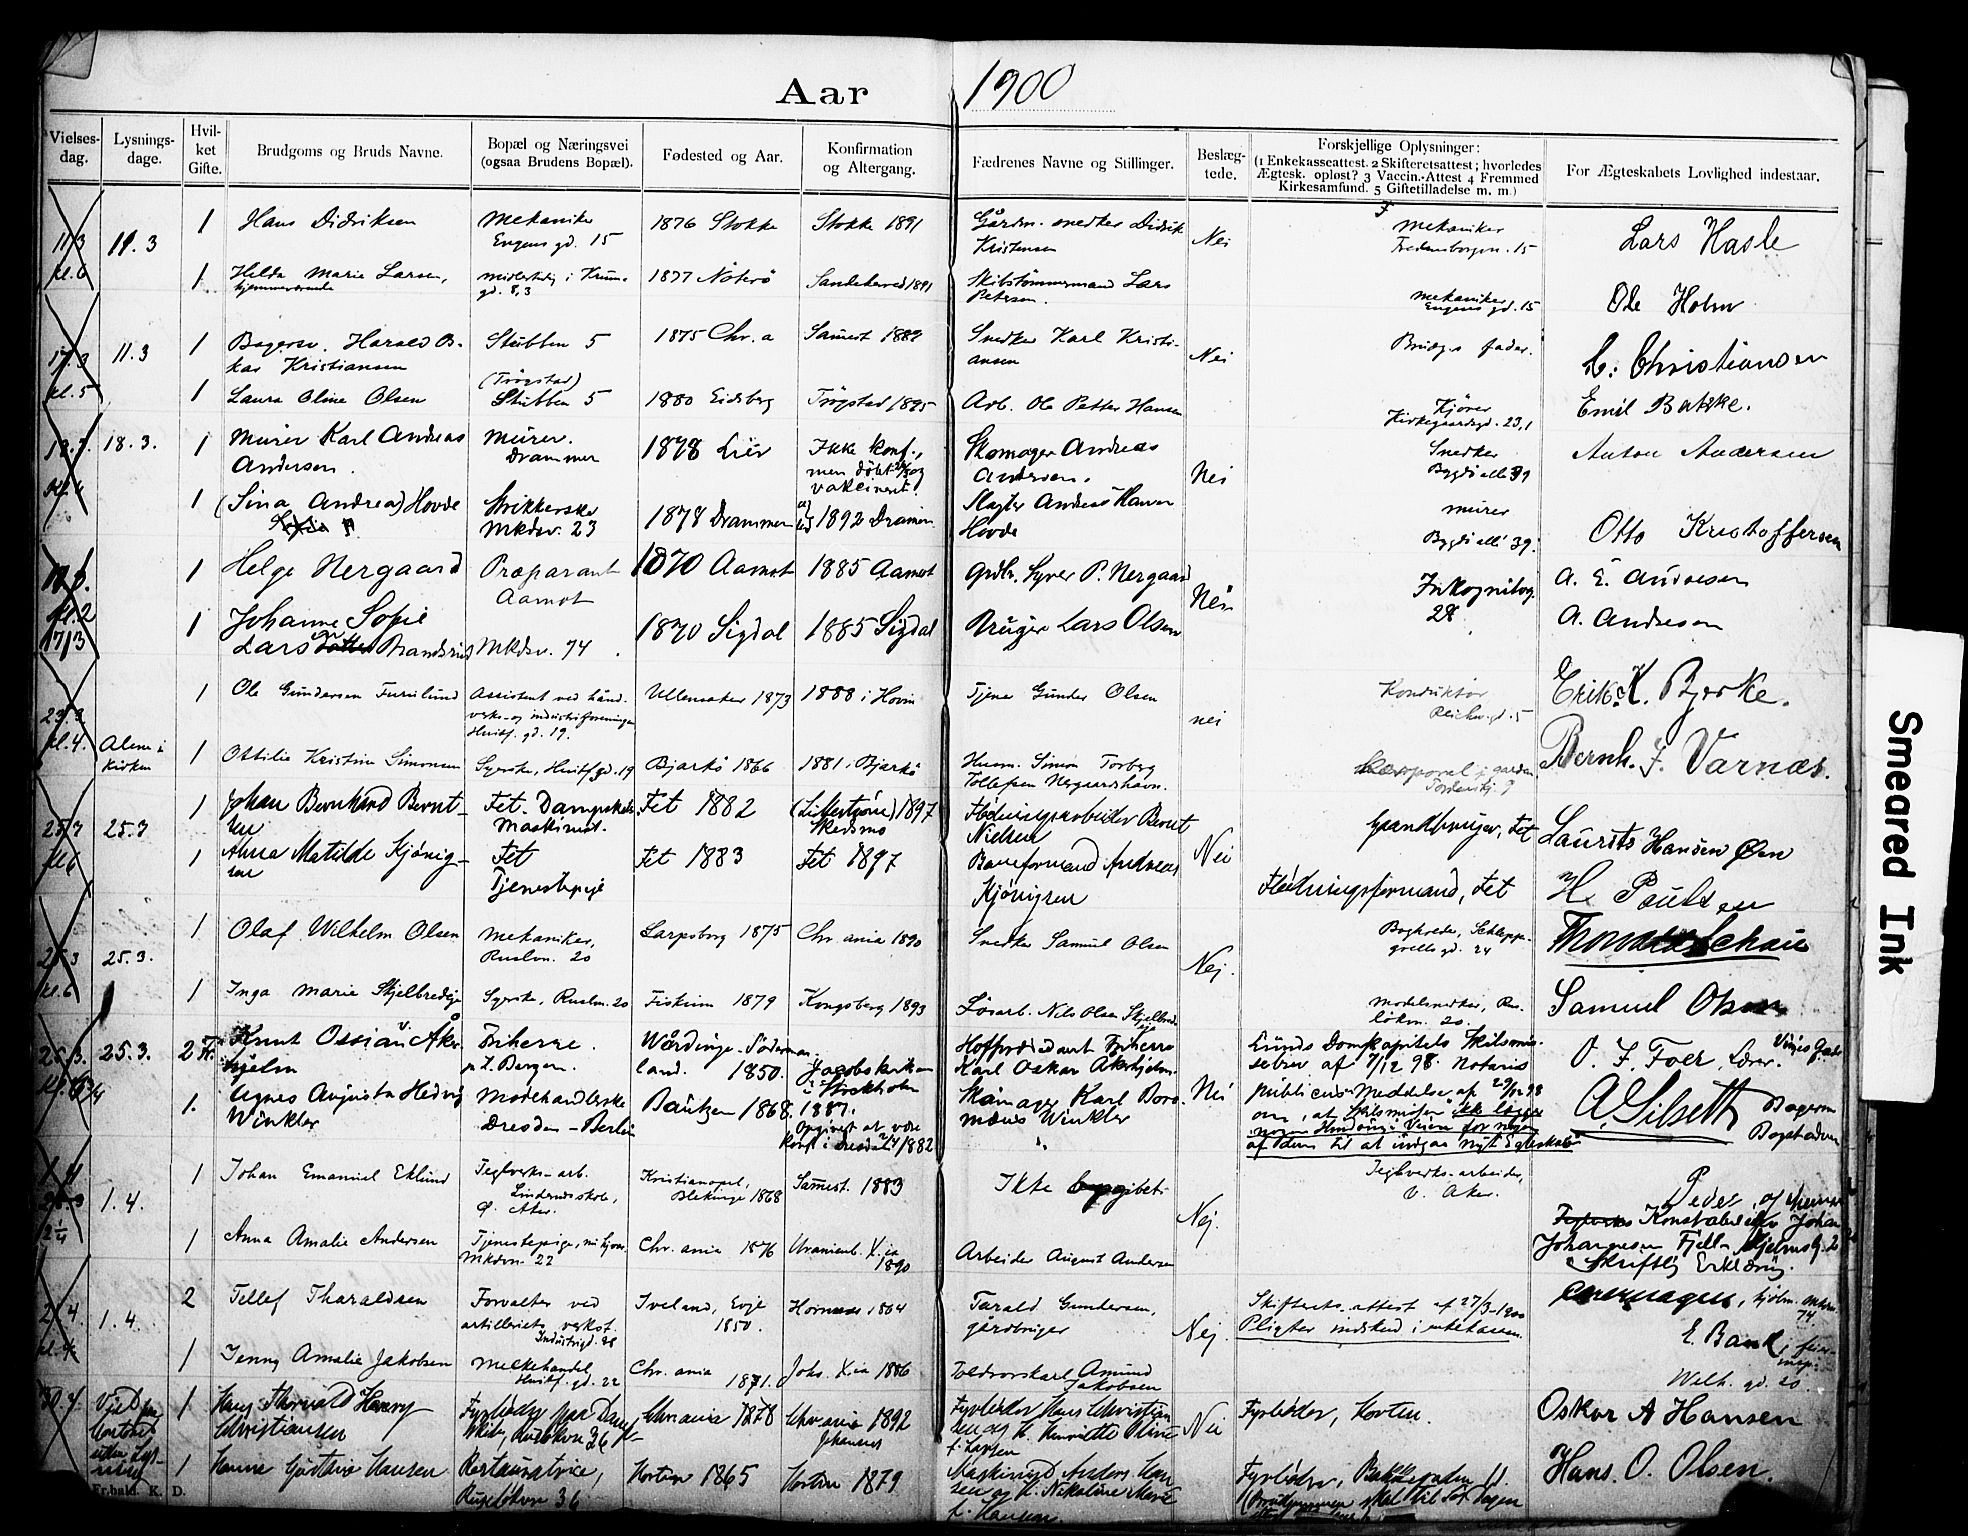 Aar 1900
Vielses-dag. Lysnings-dage. Hvil-ket Gifte. Brudgoms og Bruds Navne. Bopæl og Næringsvei (ogsaa Brudens Bopæl). Fødested og Aar. Konfirmation og Altergang. Fædrenes Navne og Stillinger. Beslæg-tede. Forskjellige Oplysninger: (1 Enkekasseattest. 2 Skifteretsattest; hvorledes Ægtesk. opløst? 3 Vaccin.-Attest 4 Fremmed Kirkesamfund. 5 Giftetilladelse m. m.) For Ægteskabets Lovlighed indestaar.
11/3 kl. 6 11.3 1 Hans Didriksen Mekaniker Engens gd. 15 1876 Stokke Stokke 1891 Gårdm. snedker Didrik Kristensen Nei Mekaniker Fredensborgv. 15 Lars Hasle
1 Helda Marie Larsen, hjemmeværende midlertidig i Krum-gd. 8,3 1877 Nøterö Sandeherred 1891 Skibstømmermand Lars Petersen. Mekaniker Engens gd. 15 Ole Holm
17.3 kl. 5 11.3 1 Bogerv. Harald Os-kar Kristiansen Stubben 5 1875 Chr.a Samest 1889 Snedker Karl Kristi-ansen Nei Bruds fader. C. Christiansen
1 Laura Oline Olsen (Trøgstad) Stubben 5 1880 Eidsberg Trøgstad 1895 Arb. Ole Petter Hansen Kjører Kirkegaardsgd. 23,1 Emil Batzke.
18.3. 1 Murer Karl Andreas Andersen. Murer. Drammen 1878 Lier Ikke konf., men døbt og vakcineret. Skomager Andreas Andersen. Nei Snedker Bygdø allé 39 Anton Andersen
1 (Sina Andrea) Hovde Strikkerske Mkdsv. 23 1878 Drammen 1892 Dramen Slagter Andreas Hansen Hovde murer Bygdø allé 39. Otto Kristoffersen
kl. 2 17/3 1 Helge Nergaard Præparant Aamot 1870 Aamot 1885 Aamot Grdbr. Syver P. Nergaard Nei Inkognitog. 28 A. E. Andresen
1 Johanne Sofie Lars datter Brandsrud Mkdsv. 74. 1870 Sigdal 1885 Sigdal Bruger Lars Olsen A. Andresen
23.3 kl. 4. Alene i kirken 1 Ole Gundersen Furulund Assistent ved hånd-verks- og industriforeningen Huitf. gd. 19. Ullensaker 1873 1888 i Hovin Tjener Gunder Olsen nei Konduktör Reichw. gd. 5 Erik K. Bjerke.
1 Ottilie Kristine Simonsen Syerske, Huitf gd. 19 Bjarkö 1866 1881, Bjarkö Husm. Simon Torberg Tollefsen Nergaardshavn. Korporal j garden Tordenskj. 9 Bernh. J. Varnæs.
25/3 kl. 6 25.3 1 Johan Bernhard Bernt-sen Fet. Dampskibs. Maskinist. Fet 1882 (Lillestrøm) 1897 Skedsmo Flødningsarbeider Bernt Nielsen Nei Grandbruger, Fet Laurits Hansen Øen
1 Anna Matilde Kjönig-sen Fet Tjenestepige Fet 1883 Fet 1897 Baneformand Andreas Kjönigsen Flødningsformand, Fet H. Paulsen
25.3 kl. 6 25.3. 1 Olaf Wilhelm Olsen Mekaniker, Ruslm. 20 Sarpsborg 1875 Chr.ania 1890 Snedker Samuel Olsen Nej. Bagkreds, Schleppe-grells gd. 24 Thomas Schau
1 Inga Marie Skjelbredeje Syerske, Ruslm. 20 Fiskum 1879 Kongsberg 1893 Løsarb. Nils Olsen Skjelbred-eje Modelsnedker, Rus-løkm. 20. Samuel Olsen
25.3. 25.3. 2 Fr. Knut Ossian Åker-hjelm Friherre. p.t. Bergen. Wårdinge Söderman-land. 1850. Jacobs kirken i Stockholm Hofpredikant Friherre Karl Oskar Åkerhjelm. Nei Lunds Domkapitels Skilsmis-sebrev af 7/12 98. Notarius O. F. Foer, Lærer. Vinjes Gade
1. Agnes Augusta Hedvig Winkler Modehandlerske Dresden – Berlin Bautzen 1868. 1887. Opgivet at være konf. i Dresden 2/4 1882 Skomager Karl Boro-mæus Winkler publicus' Meddelse af 29/12 98 om, at Skilsmissen ikke lægger nogen Hindring i Veien for nogen af dem til at indgaa nyt Egteskab. A. Gilsett Bogerm Bogstadveien
1/4 1.4. 1 Johan Emanuel Eklund Teglverks-arb. Lindernsskole, Ø. Aker. Kristianopel, Blekinge 1868 Samest. 1883 Ikke opgivet. Nej. Teglverks-arbeider, Ø. Aker. Peder
1 Anna Amalie Andersen Tjenestepige, Mkdsvn 22 Chr.ania 1876 Uranienb. X.ia 1890 Arbeider August Andersen Konstabel Johan Johannesen Fjell- Hjelmsg. 2 Skriftlig Erklæring.
2/4 kl. 4 1.4. 2 Tellef Tharaldsen Forvalter ved artilleriets verkst. Industrigd. 38 Iveland, Evje 1850. Hornnes 1864 Tarald Gundersen, gårdbruger Nej. Skifterets-attest af 27/3-1900 Pligter indskud i enkekassen.
1 Jenny Amalie Jakobsen Melkehandel Huitf. gd. 22 Chr.ania 1871. Johs. X.ia 1886 Toldvorskarl Amund Jakobsen E. Bank, Welh. gd. 20.
30.4. Viet paa Kontoret uden Lys-ning 1 Hans Thorvald Henry Christiansen Fyrbøder paa Damp-skib, Ruseløkvn 36 Chrania 1878 Chrania 1892 Johannes Fyrbøder Hans Christian-sen og h. Henriette Oline f. Larsen Nei Fyrbøder, Horten. Oskar A Hansen
1 Hanna Gjurthine Hansen Restauratrice, Ruseløkvn 36 Horten 1865 Horten 1879 Maskinist Anders Han-sen og h. Nikoline Marie f. Hansen Fyrbøder, Hans. O. Olsen.
Fr.bald. K. D.
Smeared Ink